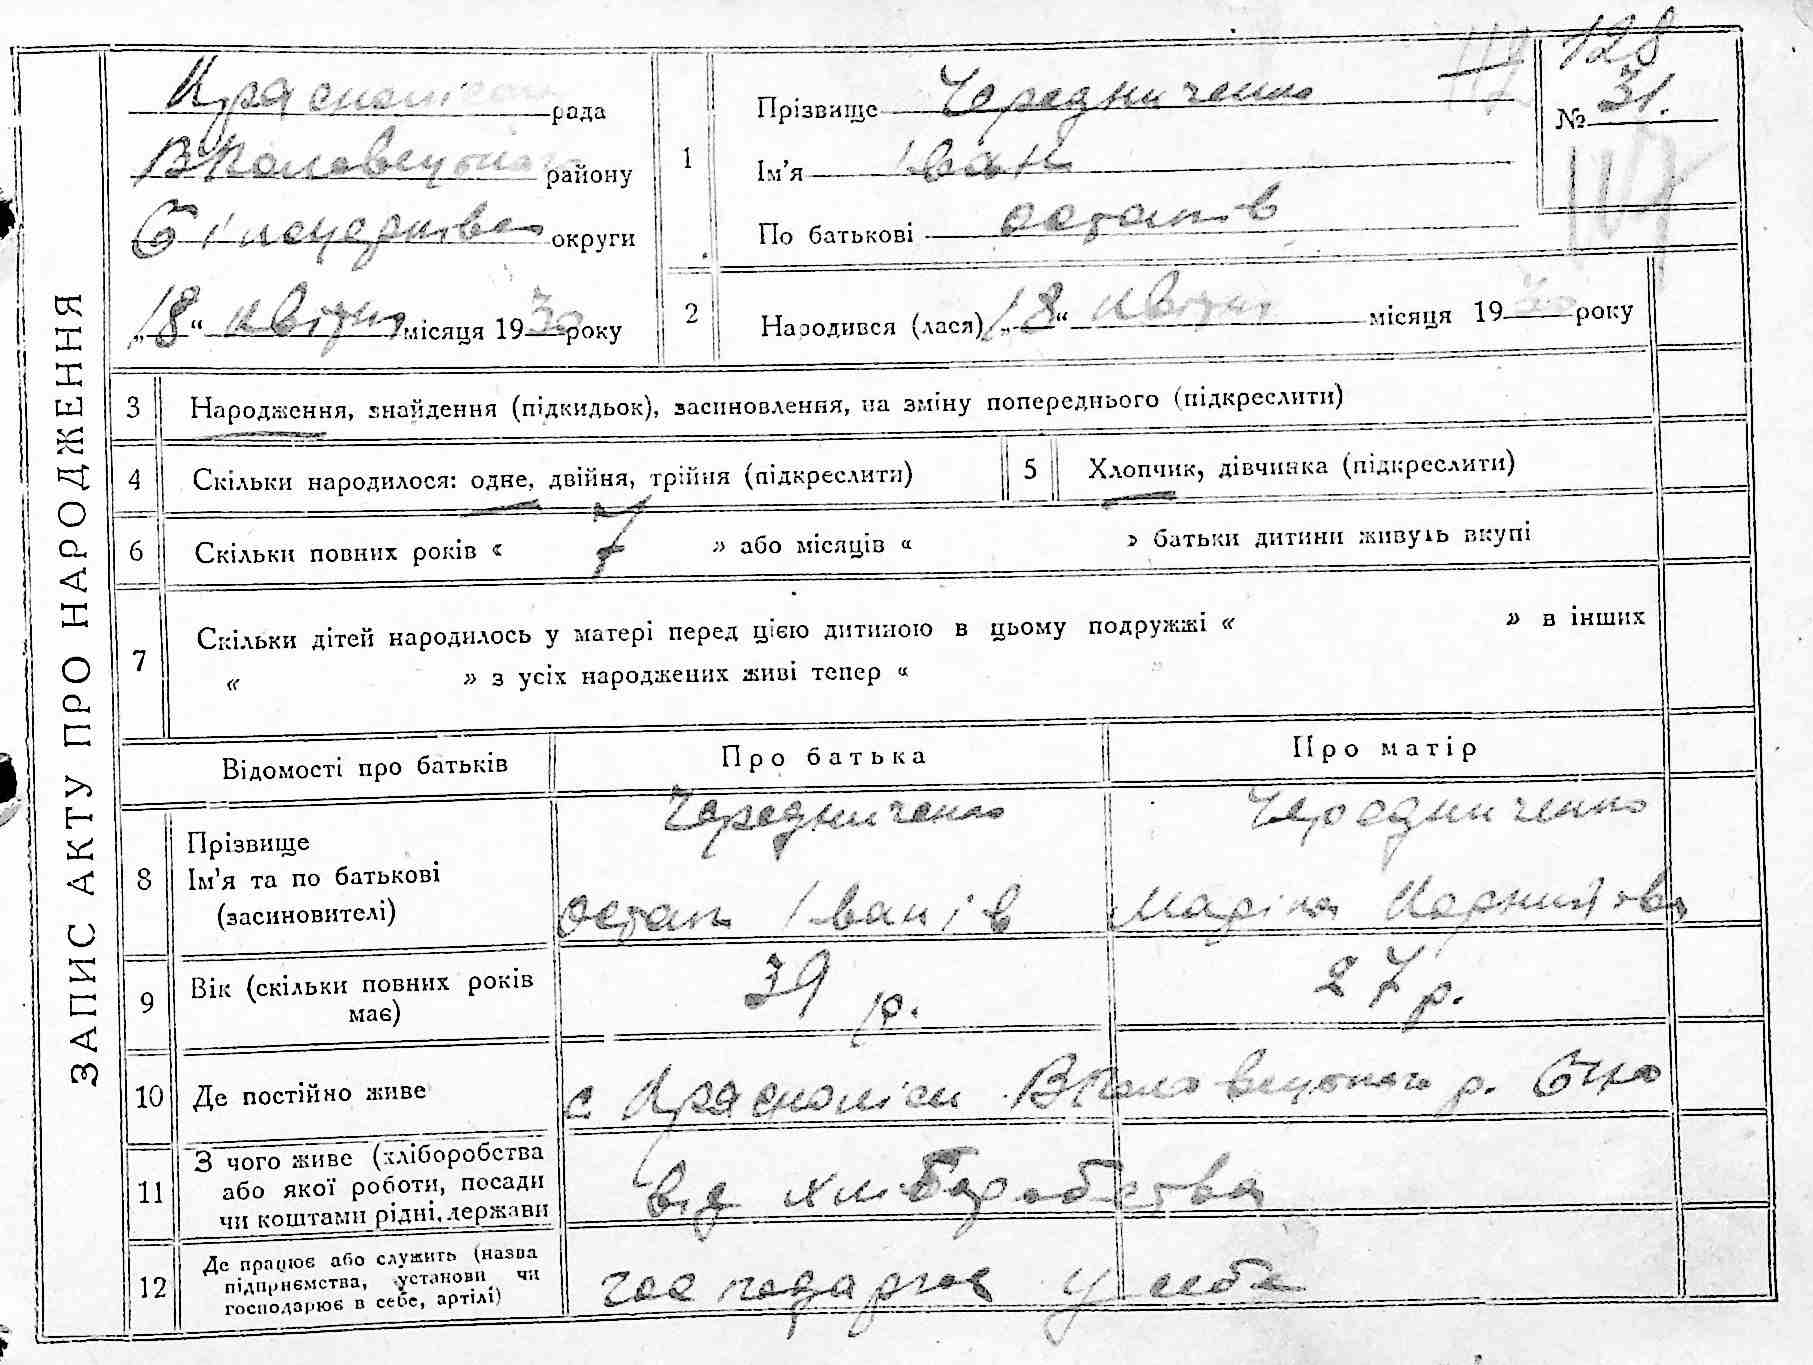 ЗАПИС АКТУ ПРО НАРОДЖЕННЯ
128
рада
району
округи
„18“ квітня місяця 1930 року
1
Прізвище Чередниченко
Ім'я Іван
По батькові Остапів
№ 31.
2
Народився (лася) „18“ квітня місяця 1930 року
3 Народження, знайдення (підкидьок), засиновлення, на зміну попереднього (підкреслити)
4 Скільки народилося: одне, двійня, трійня (підкреслити)
5 Хлопчик, дівчинка (підкреслити)
6 Скільки повних років « 7 » або місяців « » батьки дитини живуть вкупі
7 Скільки дітей народилось у матері перед цією дитиною в цьому подружжі « » в інших
« » з усіх народжених живі тепер « »
Відомості про батьків Про батька Про матір
8 Прізвище
Ім'я та по батькові
(засиновителі)
Чередниченко
Остап Іванів
Чередниченко
Маріна
9 Вік (скільки повних років
має)
39 р.
27 р.
10 Де постійно живе
с р.
11 З чого живе (хліборобства
або якої роботи, посади
чи коштами рідні, держави
від хліборобства
12 Де працює або служить (назва
підприємства, установи чи
господарює в себе, артілі)
господарює у себе